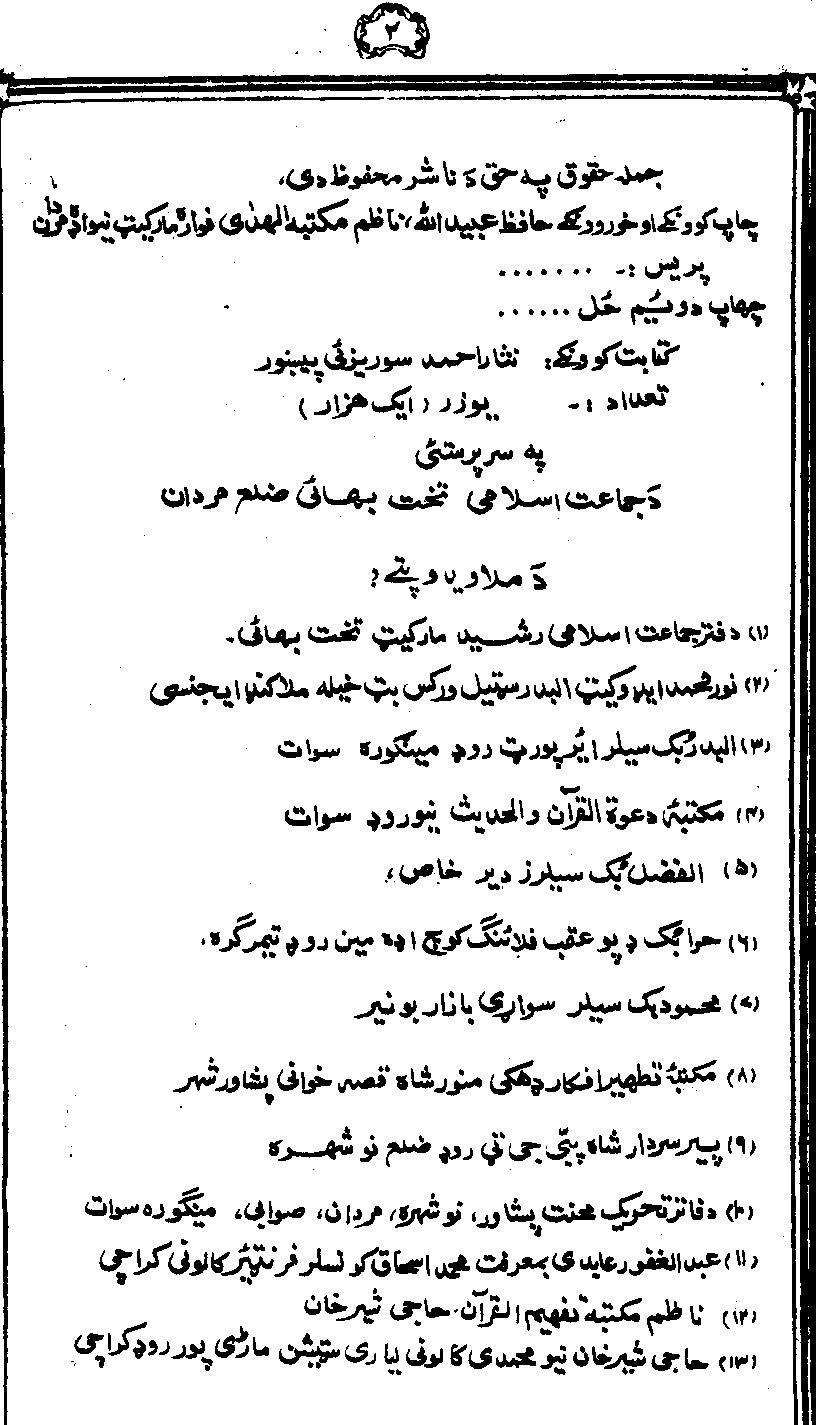 ۲
جمله حقوق په حق دَ ناشر محفوظ دی،
چاپ کوونکے او خورونکے حافظ عبیدالله، ناظم مکتبه الهدٰی فواره مارکیټ نیو اډه مردان
پریس :۔ .......
چھاپ دوئیم ځل ......
کتابت کوونکے: نثار احمد سوریزئی پیښور
تعداد :۔ یو زر (ایک هزار)
په سرپرستئی
دَ جماعت اسلامی تخت بهائی ضلع مردان
دَ ملاویدو پتے :
(۱) دفتر جماعت اسلامی رشید مارکیټ تخت بهائی۔
(۲) نور محمد ایډوکیټ البدر سټیل ورکس بټ خیله ملاکنډ ایجنسی
(۳) البدر بُک سیلر ائرپورټ روډ مینګوره سوات
(۴) مکتبۂ دعوة القرآن والحدیث نیو روډ سوات
(۵) الفضل بُک سیلرز دیر خاص،
(۶) حرا بُک ډپو عقب فلائنگ کوچ اډه مین روډ تیمرگره۔
(۷) محمود بک سیلر سواړی بازار بونیر
(۸) مکتبۂ تطهیر افکار ډھکی منور شاه قصه خوانی پشاور شهر
(۹) پیر سردار شاه پبّی جی ټی روډ ضلع نوشهره
(۱۰) دفاتر تحریک محنت پشاور، نوشهره، مردان، صوابی، مینگوره سوات
(۱۱) عبدالغفور عابدی بمعرفت محمد اسحاق کونسلر فرنټیئر کالونی کراچی
(۱۲) ناظم مکتبه تفهیم القرآن۔ حاجی شیرخان
(۱۳) حاجی شیرخان نیو محمدی کالونی لیاری سټیشن ماڑی پور روډ کراچی